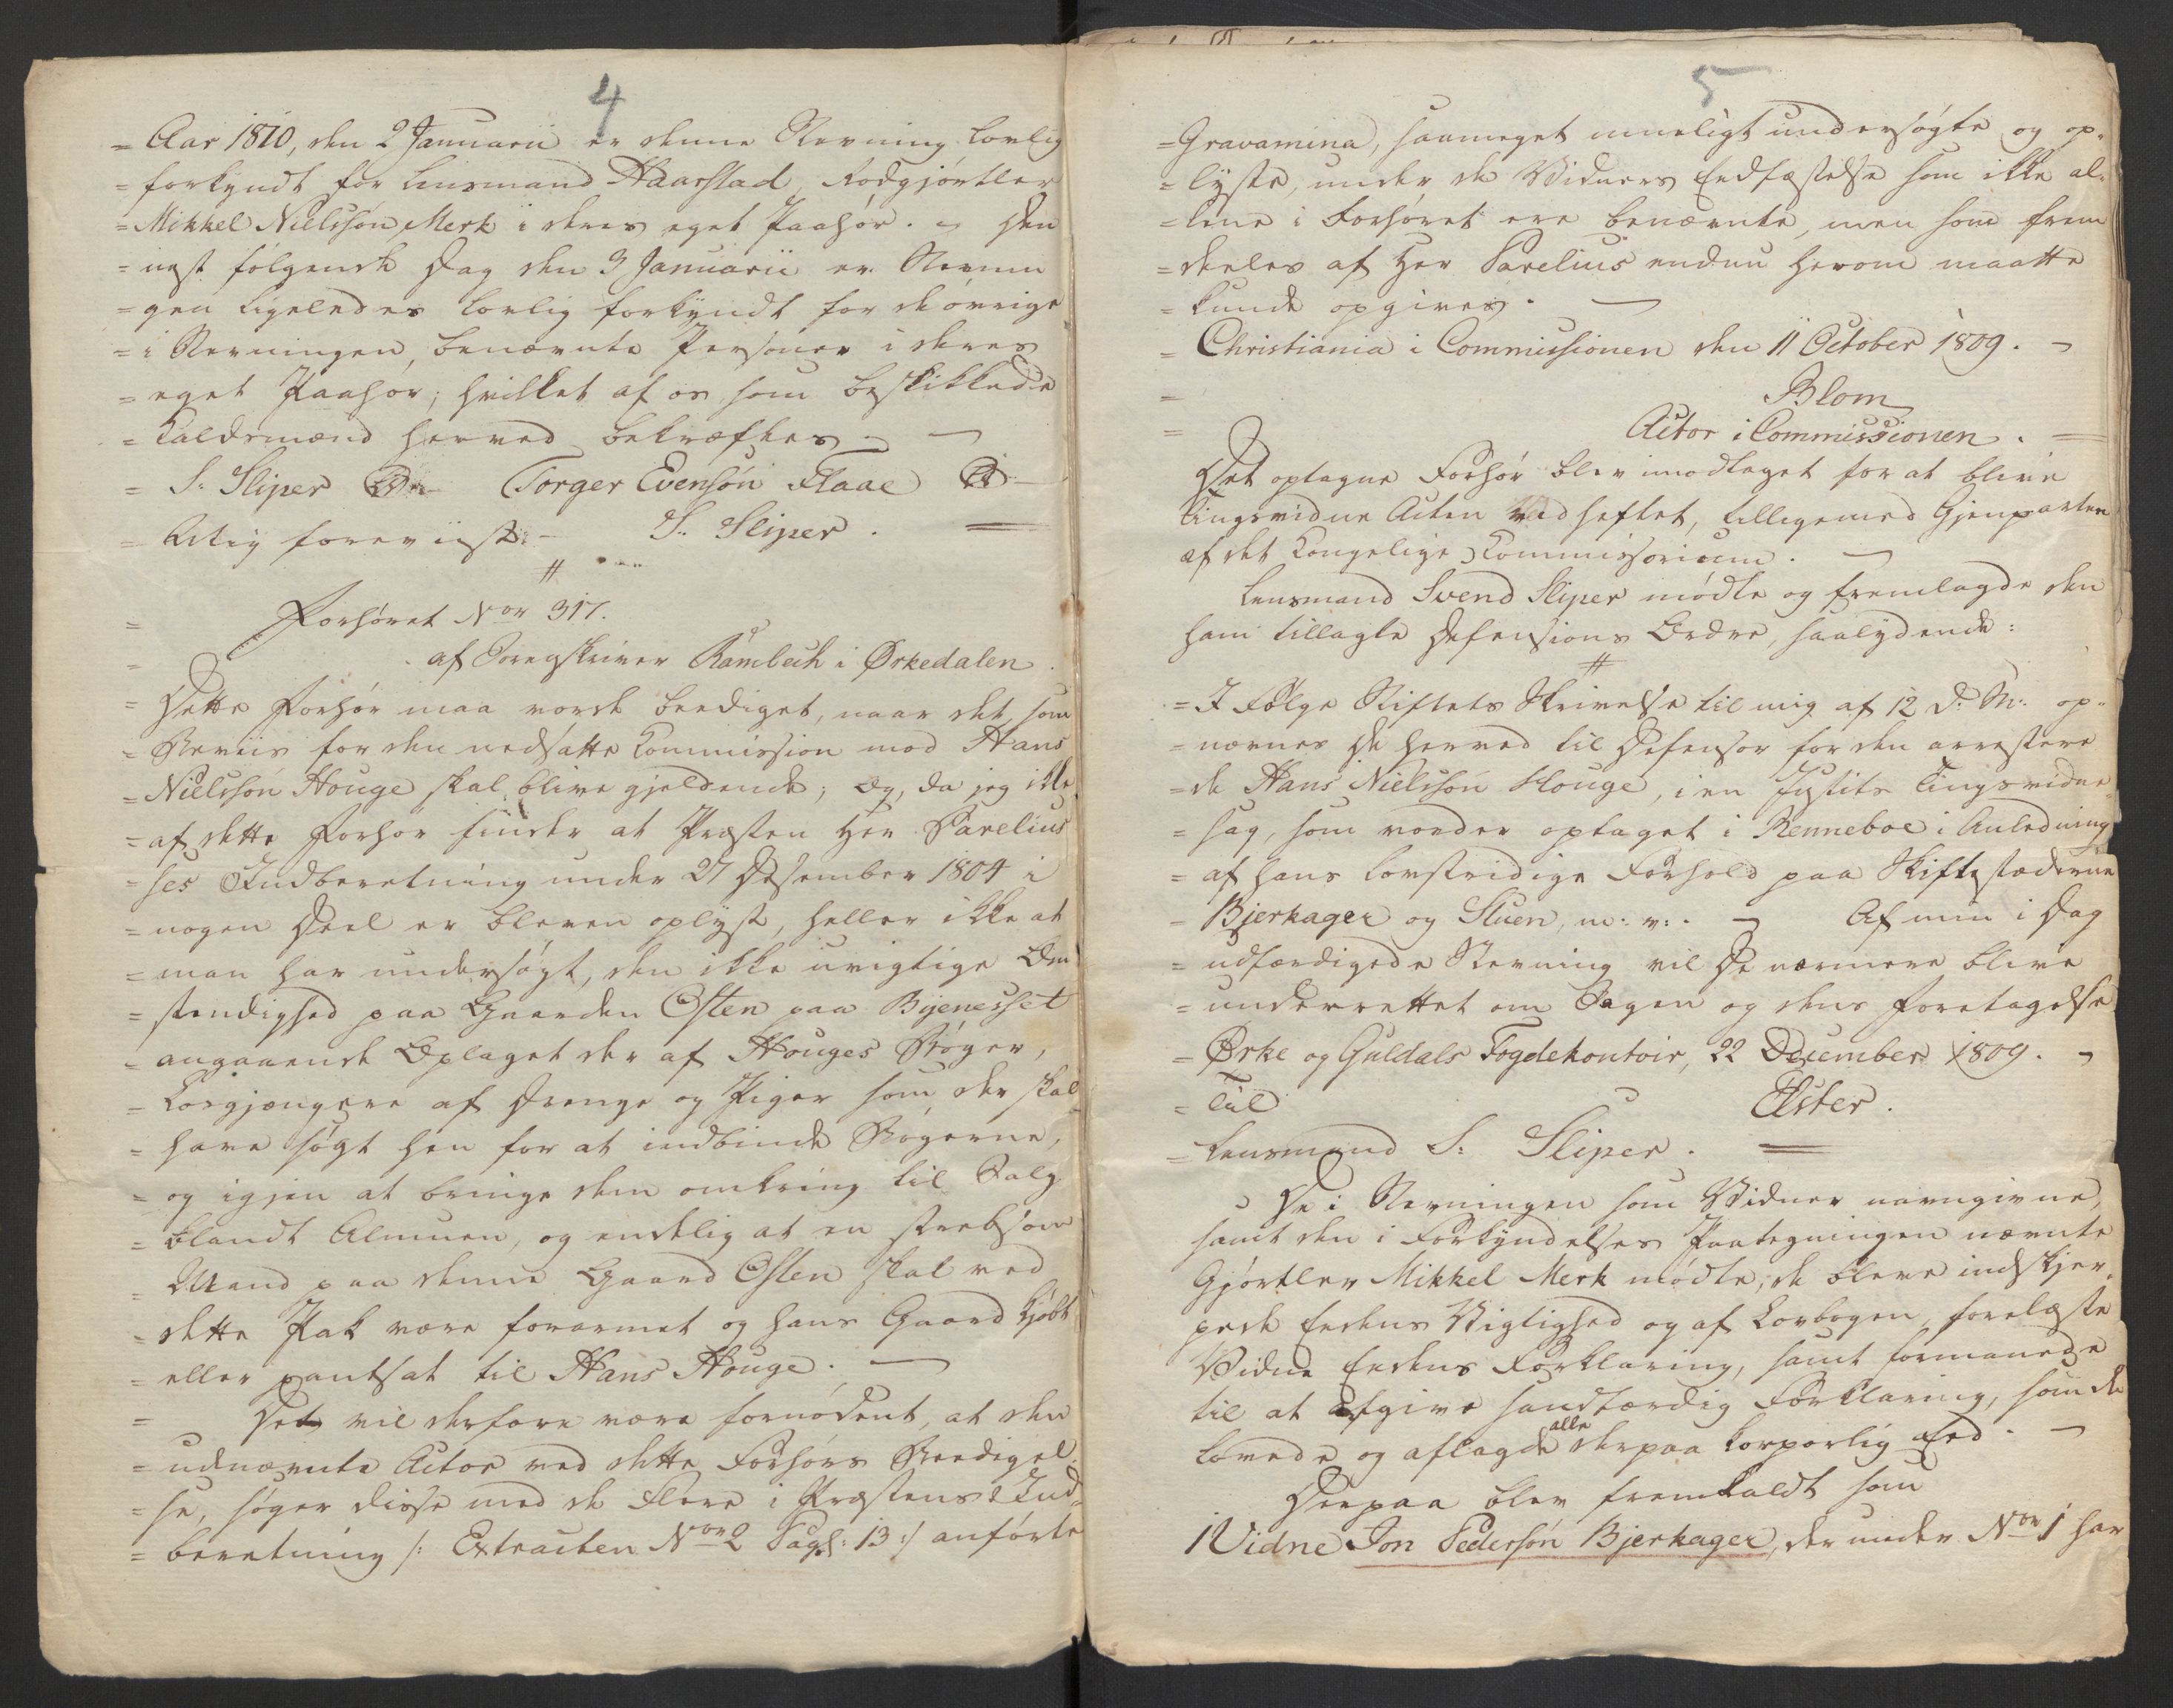 4
= Aar 1810, den 2 Januarii er denne Stevning lovlig
= forkyndt for Lensmand Haarstad, Rodgjørtler
= Mikkel Nielssøn Merk i deres eget Paahør. – Den
= nest følgende Dag den 3 Januarii er Stevnin
= gen ligeledes lovlig forkyndt for de øvrige
= i Stevningen benævnte Personer i deres
= eget Paahør; hvilket af os som beskikkede
= Kaldsmænd herved bekræftes. –
= S. Sliper Torger Evensøn Flaae
= Rtig foreviist: – S. Sliper. =
#
= Forhøret Nor 317.
= af Sorgskriver Rambech i Ørkedalen.
= Dette Forhør maa vorde beediget, naar det som
= Beviis for den nedsatte Commission mod Hans
= Nielssøn Houge skal blive gjeldende; Og, da jeg ikke
= af dette Forhør finder at Præsten Her Parelius
= ses Indberetning under 27 Desember 1804 i
= nogen Deel er bleven oplyst, heller ikke at
= man har undersøgt, den ikke uvigtige Om
= stendighed paa Gaarden Osten paa Bynesset
= angaaende Oplaget der af Houges Bøger,
= Løsgjængere af Drenge og Piger som der skal
= have søgt hen for at indbinde Bøgerne,
= og igjen at bringe dem omkring til Salg
= blandt Almuen, og endelig at en strebsom
= Mand paa denne Gaard Osten skal ved
= dette Pak være forarmet og hans Gaard kjøbt
= eller pantsat til Hans Houge. –
= Det vil derfore være fornødent, at den
= udnævnte Actor ved dette Forhørs Beedigel
= se, søger disse med de Flere i Præstens Ind=
= beretning /: Extracten Nor 2 Pag: 13 :/ anførte
5
= Gravamina, saameget mueligt undersøgte og op=
= lyste, under de Vidners Eedfæstelse som ikke al=
= lene i Forhøret ere benævnte, men som frem
= deeles af Her Parelius endnu herom maatte
= kunde opgives. –
= Christiania i Commissionen den 11 October 1809. –
= Blom
= Actor i Commissionen. =
Det optagne Forhør blev imodtaget for at blive
Tingsvidne Acten vedheftet, tilligemed Gjenparten
af det Kongelige Commissorium. –
Lensmand Svend Sliper mødte og fremlagde den
ham tillagte Defensions Ordre, saalydende:
#
= I Følge Stiftets Skrivelse til mig af 12 D: M: op=
= nævnes De herved til Defensor for den arrestere
= de Hans Nielssøn Houge, i en Justits Tingsvidne
= sag, som vorder optaget i Renneboe i Anledning
= af hans lovstridige Forhold paa Skiftestæderne
= Bjerkager og Stuen, m: v: . – Af min i Dag
= udfærdigede Stevning vil De nærmere blive
= underrettet om Sagen og dens Foretagelse
= Ørke og Guldals Fogdekontoir, 22 December 1809. –
= Til Elster.
= Lensmand S: Sliper. =
De i Stevningen som Vidner navngivne,
samt den i Forkyndelses Paategningen nævnte
Gjørtler Mikkel Merk mødte; de bleve indskjer=
pede Eedens Vigtighed og af Lovbogen forelæste
Vidne Eedens Forklaring, samt formanede
til at afgive sandfærdig Forklaring, som de
lovede og aflagde alle derpaa korporlig Eed. –
Derpaa blev fremkaldt som
1 Vidne Jon Pedersøn Bjerkager, der under Nor 1 har